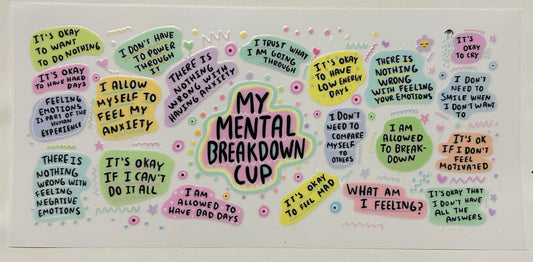 IT'S OKAY
TO WANT
TO DO NOTHING
I DON'T HAVE
TO POWER
THROUGH
IT
IT'S OKAY
TO HAVE HARD
DAYS
FEELING
EMOTIONS
IS PART OF THE
HUMAN
EXPERIENCE
I ALLOW
MYSELF TO
FEEL MY
ANXIETY
THERE IS
NOTHING
WRONG WITH
HAVING ANXIETY
THERE IS
NOTHING
WRONG WITH
FEELING
NEGATIVE
EMOTIONS
IT'S OKAY
IF I CAN'T
DO IT ALL
I AM
ALLOWED TO
HAVE BAD DAYS
MY
MENTAL
BREAKDOWN
CUP
I TRUST WHAT
I AM GOING
THROUGH
IT'S OKAY
TO HAVE
LOW ENERGY
DAYS
THERE IS
NOTHING
WRONG
WITH FEELING
YOUR EMOTIONS
IT'S
OKAY
TO CRY
I DON'T
NEED TO
SMILE WHEN
I DON'T WANT
TO
I DON'T
NEED TO
COMPARE
MYSELF
TO
OTHERS
I AM
ALLOWED
TO BREAK-
DOWN
IT'S OK
IF I DON'T
FEEL
MOTIVATED
IT'S OKAY
TO FEEL MAD
WHAT AM
I FEELING?
IT'S OKAY THAT
I DON'T HAVE
ALL THE
ANSWERS